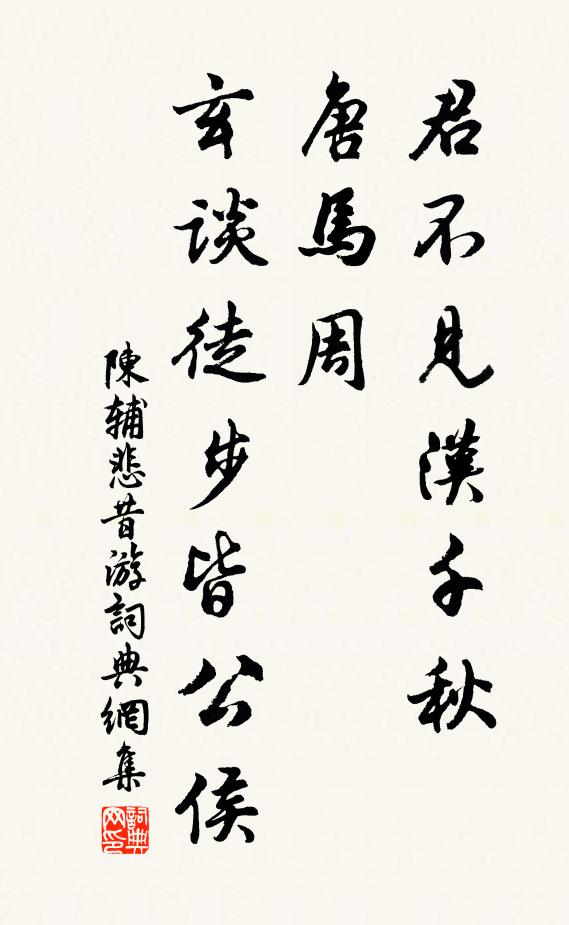 君不見漢千秋
唐馬周
玄談徒步皆公侯
陳辅悲昔游詞典網集
詞典
网印